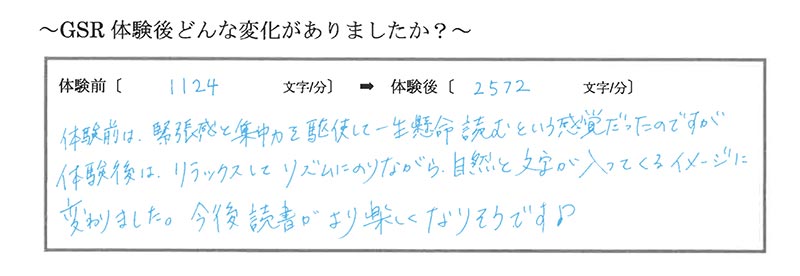 ～GSR 体験後どんな変化がありましたか？～
体験前〔 1124 文字/分〕 ➡ 体験後〔 2572 文字/分〕
体験前は、緊張感と集中力を駆使して一生懸命読むという感覚だったのですが
体験後は、リラックスしてリズムにのりながら、自然と文字が入ってくるイメージに
変わりました。今後読書がより楽しくなりそうです♪